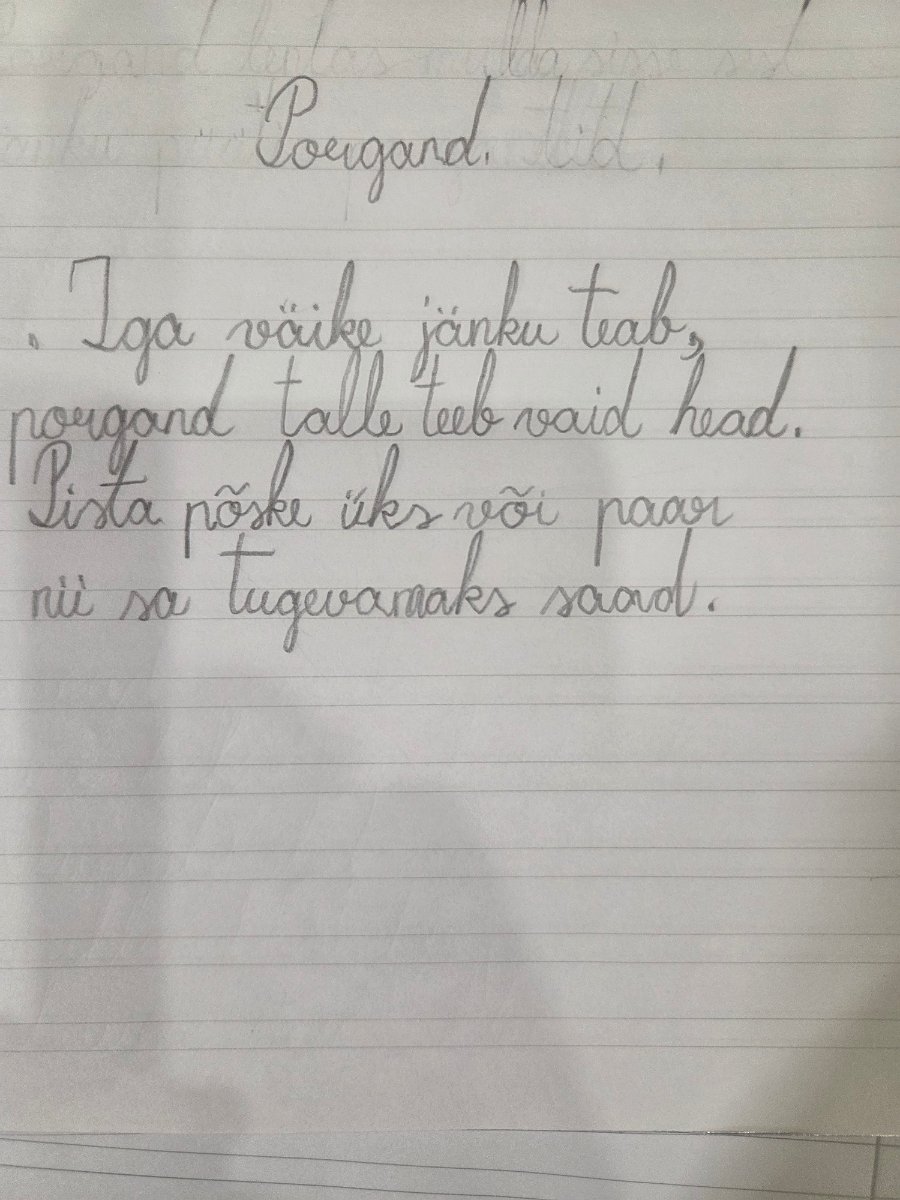 Porgand.
Iga väike jänku teab,
porgand talle teeb vaid head.
Pista põske üks või paar
nii sa tugevamaks saad.